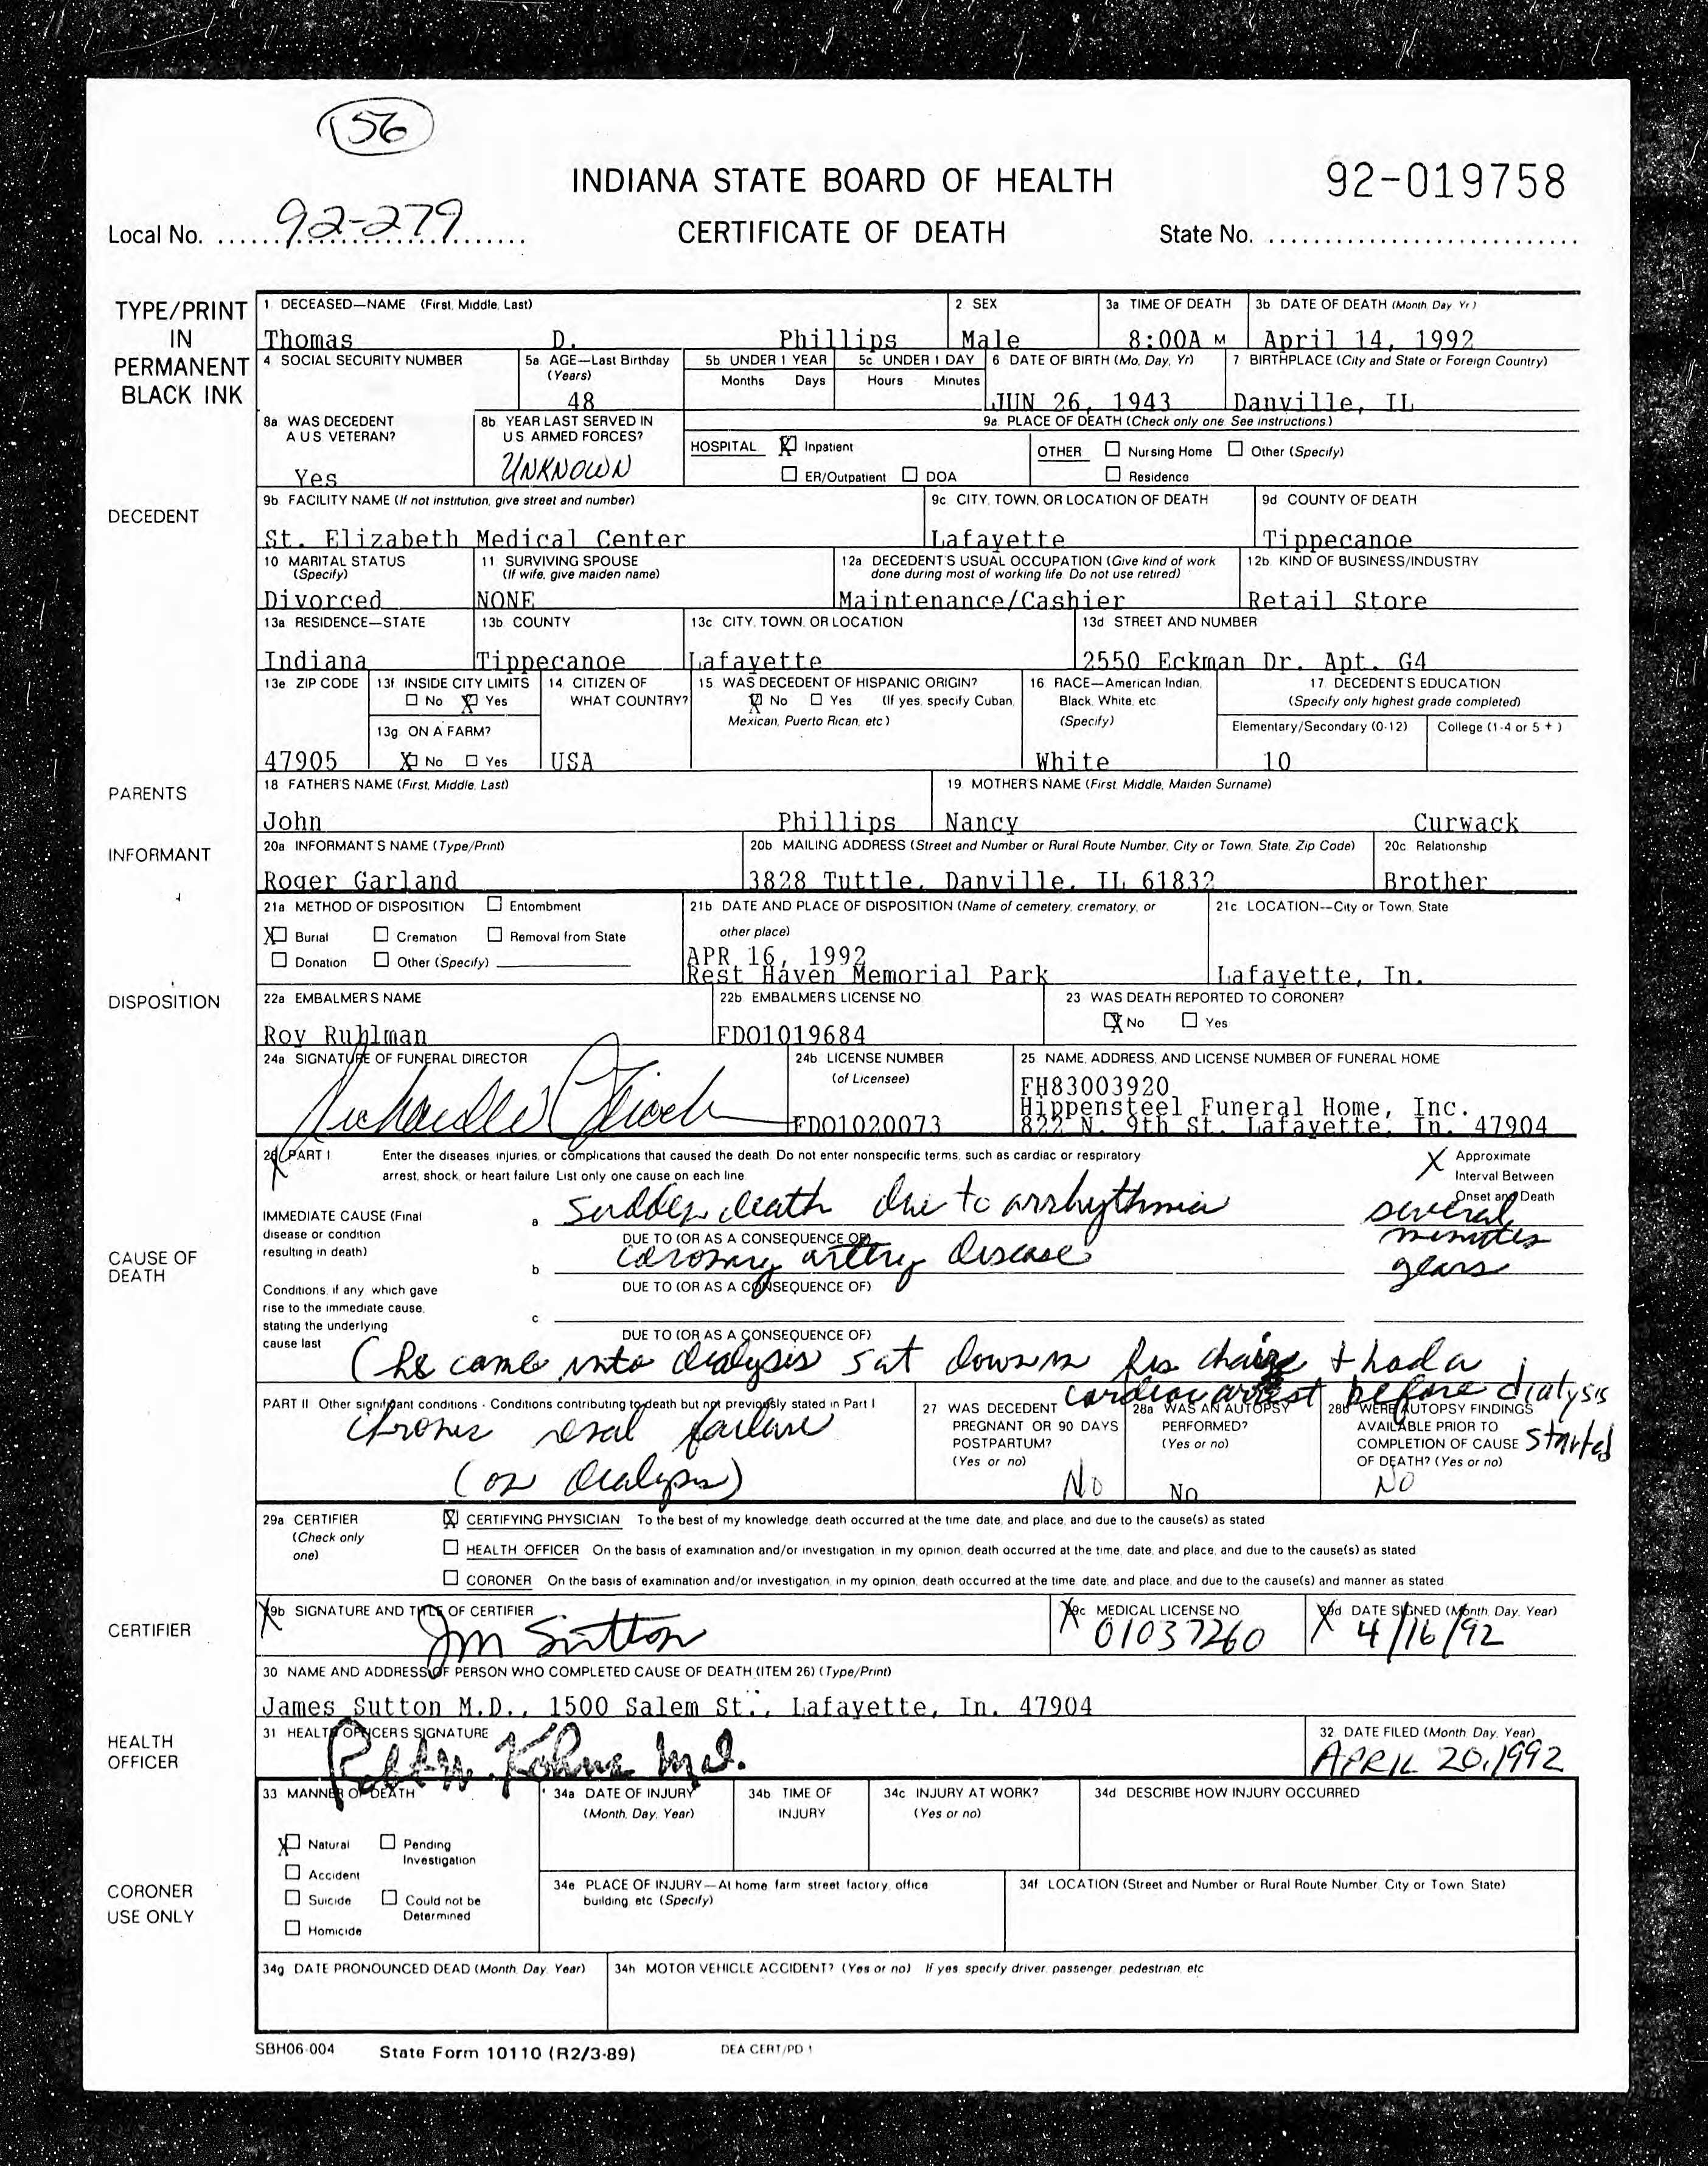 156
INDIANA STATE BOARD OF HEALTH
92-019758
Local No. 92-279
CERTIFICATE OF DEATH
State No.
TYPE/PRINT IN PERMANENT BLACK INK
1 DECEASED—NAME (First, Middle, Last)
2 SEX
3a TIME OF DEATH
3b DATE OF DEATH (Month, Day, Yr)
Thomas D. Phillips
Male
8:00A M
April 14, 1992
4 SOCIAL SECURITY NUMBER
5a AGE—Last Birthday (Years)
48
5b UNDER 1 YEAR
Months Days
5c UNDER 1 DAY
Hours Minutes
6 DATE OF BIRTH (Mo, Day, Yr)
JUN 26, 1943
7 BIRTHPLACE (City and State or Foreign Country)
Danville, IL
8a WAS DECEDENT A U.S. VETERAN?
Yes
8b YEAR LAST SERVED IN U.S. ARMED FORCES?
UNKNOWN
9a PLACE OF DEATH (Check only one. See instructions)
HOSPITAL X Inpatient
ER/Outpatient DOA
OTHER Nursing Home Other (Specify)
Residence
DECEDENT
9b FACILITY NAME (If not institution, give street and number)
St. Elizabeth Medical Center
9c CITY, TOWN, OR LOCATION OF DEATH
Lafayette
9d COUNTY OF DEATH
Tippecanoe
10 MARITAL STATUS (Specify)
Divorced
11 SURVIVING SPOUSE (If wife, give maiden name)
NONE
12a DECEDENT'S USUAL OCCUPATION (Give kind of work done during most of working life. Do not use retired)
Maintenance/Cashier
12b KIND OF BUSINESS/INDUSTRY
Retail Store
13a RESIDENCE—STATE
Indiana
13b COUNTY
Tippecanoe
13c CITY, TOWN, OR LOCATION
Lafayette
13d STREET AND NUMBER
2550 Eckman Dr. Apt. G4
13e ZIP CODE
47905
13f INSIDE CITY LIMITS
No X Yes
13g ON A FARM?
X No Yes
14 CITIZEN OF WHAT COUNTRY?
USA
15 WAS DECEDENT OF HISPANIC ORIGIN?
X No Yes (If yes, specify Cuban, Mexican, Puerto Rican, etc)
16 RACE—American Indian, Black, White, etc (Specify)
White
17 DECEDENT'S EDUCATION
(Specify only highest grade completed)
Elementary/Secondary (0-12)
10
College (1-4 or 5 +)
PARENTS
18 FATHER'S NAME (First, Middle, Last)
John Phillips
19 MOTHER'S NAME (First, Middle, Maiden Surname)
Nancy Curwack
INFORMANT
20a INFORMANT'S NAME (Type/Print)
Roger Garland
20b MAILING ADDRESS (Street and Number or Rural Route Number, City or Town, State, Zip Code)
3828 Tuttle, Danville, IL 61832
20c Relationship
Brother
21a METHOD OF DISPOSITION Entombment
X Burial Cremation Removal from State
Donation Other (Specify)
21b DATE AND PLACE OF DISPOSITION (Name of cemetery, crematory, or other place)
APR 16, 1992
Rest Haven Memorial Park
21c LOCATION—City or Town, State
Lafayette, In.
DISPOSITION
22a EMBALMER'S NAME
Roy Ruhlman
22b EMBALMER'S LICENSE NO
FDO1019684
23 WAS DEATH REPORTED TO CORONER?
X No Yes
24a SIGNATURE OF FUNERAL DIRECTOR
24b LICENSE NUMBER (of Licensee)
FDO1020073
25 NAME, ADDRESS, AND LICENSE NUMBER OF FUNERAL HOME
FH83003920
Hippensteel Funeral Home, Inc.
822 N. 9th St. Lafayette, In. 47904
26 PART I Enter the diseases, injuries, or complications that caused the death. Do not enter nonspecific terms, such as cardiac or respiratory
arrest, shock, or heart failure. List only one cause on each line
X Approximate Interval Between Onset and Death
CAUSE OF DEATH
IMMEDIATE CAUSE (Final disease or condition resulting in death)
a sudden death due to arrhythmia
several minutes
DUE TO (OR AS A CONSEQUENCE OF)
b coronary artery disease
years
DUE TO (OR AS A CONSEQUENCE OF)
Conditions, if any, which gave rise to the immediate cause, stating the underlying cause last
c
DUE TO (OR AS A CONSEQUENCE OF)
(he came into dialysis sat down in his chair + had a
cardiac arrest before dialysis
started
PART II Other significant conditions - Conditions contributing to death but not previously stated in Part I
chronic renal failure
(on dialysis)
27 WAS DECEDENT PREGNANT OR 90 DAYS POSTPARTUM? (Yes or no)
No
28a WAS AN AUTOPSY PERFORMED? (Yes or no)
No
28b WERE AUTOPSY FINDINGS AVAILABLE PRIOR TO COMPLETION OF CAUSE OF DEATH? (Yes or no)
NO
29a CERTIFIER (Check only one)
X CERTIFYING PHYSICIAN To the best of my knowledge, death occurred at the time, date, and place, and due to the cause(s) as stated
HEALTH OFFICER On the basis of examination and/or investigation, in my opinion, death occurred at the time, date, and place, and due to the cause(s) as stated
CORONER On the basis of examination and/or investigation, in my opinion, death occurred at the time, date, and place, and due to the cause(s) and manner as stated
CERTIFIER
X 29b SIGNATURE AND TITLE OF CERTIFIER
Jm Sutton
X 29c MEDICAL LICENSE NO
01037260
X 29d DATE SIGNED (Month, Day, Year)
4/16/92
30 NAME AND ADDRESS OF PERSON WHO COMPLETED CAUSE OF DEATH (ITEM 26) (Type/Print)
James Sutton M.D., 1500 Salem St., Lafayette, In. 47904
HEALTH OFFICER
31 HEALTH OFFICERS SIGNATURE
32 DATE FILED (Month, Day, Year)
APRIL 20, 1992
33 MANNER OF DEATH
X Natural Pending Investigation
Accident
Suicide Could not be Determined
Homicide
34a DATE OF INJURY (Month, Day, Year)
34b TIME OF INJURY
34c INJURY AT WORK? (Yes or no)
34d DESCRIBE HOW INJURY OCCURRED
CORONER USE ONLY
34e PLACE OF INJURY—At home, farm, street, factory, office building, etc (Specify)
34f LOCATION (Street and Number or Rural Route Number, City or Town, State)
34g DATE PRONOUNCED DEAD (Month, Day, Year)
34h MOTOR VEHICLE ACCIDENT? (Yes or no) If yes, specify driver, passenger, pedestrian, etc
SBH06-004 State Form 10110 (R2/3-89) DEA CERT/PD 1